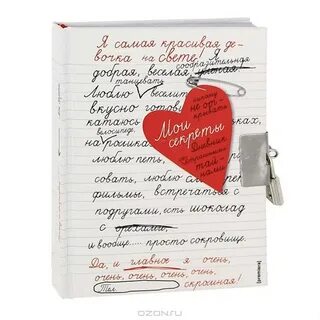 Я самая красивая де-
вочка на свете!
сообразительная
добрая, веселая, умная!
танцевать
Люблю веселит
вкусно готови
катаюсь
велосипеде
на роликах
люблю петь,
совать, люблю
фильмы, встречаться с
подругами, есть шоколад
с орехами,
и вообще.... просто сокровище.
Да, и главное я очень,
очень, очень, очень, очень,
Тел. скромная!
никому
не от-
крывать
Мои
секреты
Дневник
тай-
нами
OZON.ru